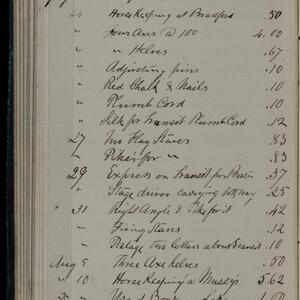 24 Horse Keeping at Bradford .50
" Four Axes @ 1.00 4.00
" " Helves .67
" Adjusting pins .10
" Red Chalk & Nails .10
" Plumb Cord .10
" Silk for Transit Plumb Cord .12
27 Two Flag Staves .83
" Pikes for " .83
29 Express on Transit for Boston .37
" Stage driver carrying both way .25
" 31 Right Angle & Pike for it .42
" Fixing Staves .12
" Postage two letters about Transit .10
Aug 5 Three Axe helves .50
" 10 Horse Keeping a 5.62